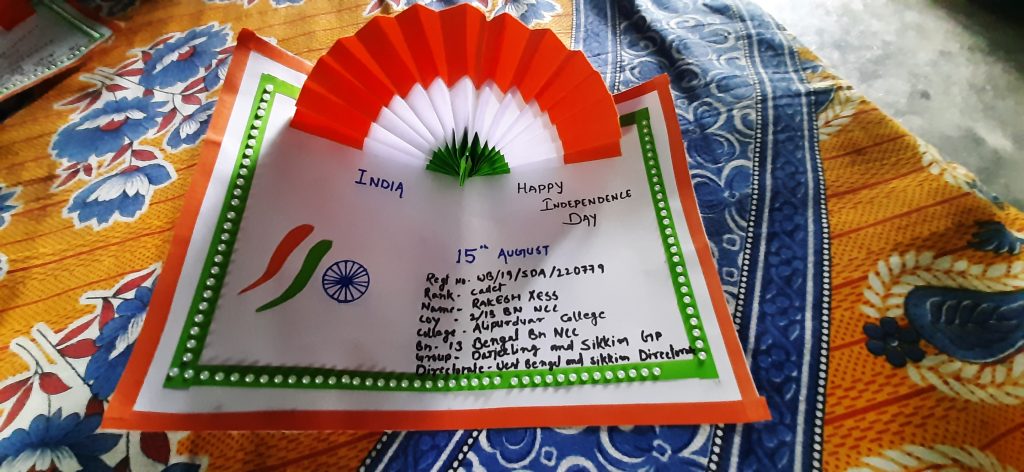 INDIA
HAPPY
INDEPENDENCE
DAY
15th AUGUST
Regt No. WB/19/SDA/220779
Rank - Cadet
Name - RAKESH XESS
Coy - 2/13 BN NCC
College - Alipurduar College
Bn - 13 Bengal Bn NCC
Group - Darjeeling and Sikkim GP
Directorate - West Bengal and Sikkim Directorate